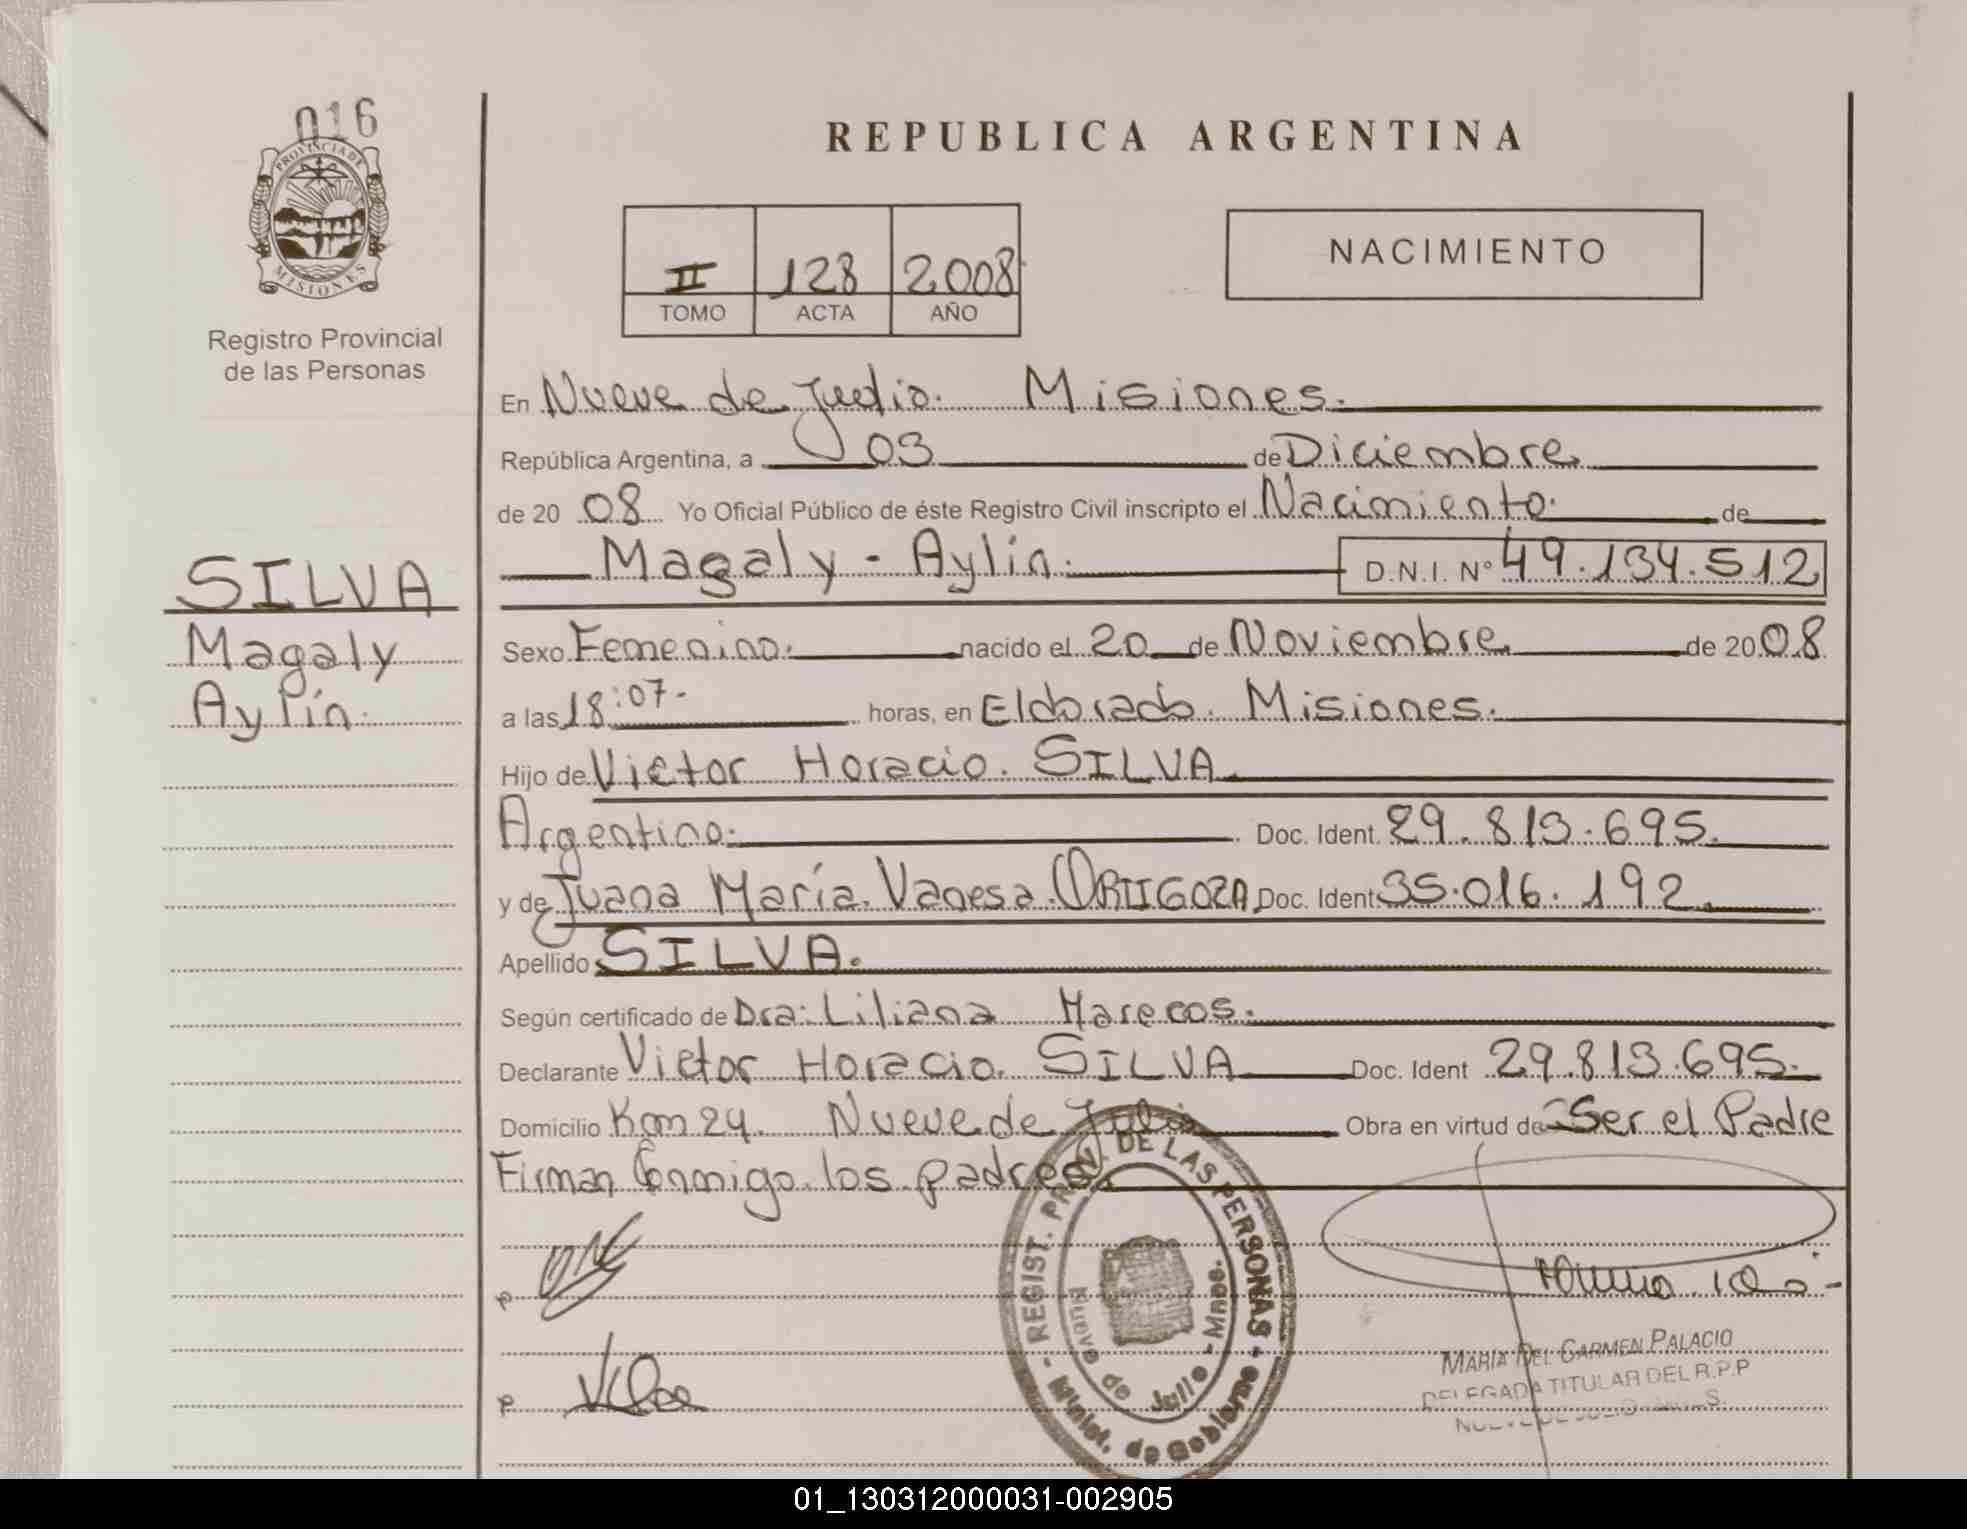 016
PROVINCIA DE
MISIONES
Registro Provincial
de las Personas
SILVA
Magaly
Aylín.
REPUBLICA ARGENTINA
II 128 2008
TOMO ACTA AÑO
NACIMIENTO
En Nueve de Julio. Misiones.
República Argentina, a 03 de Diciembre
de 20 08 Yo Oficial Público de éste Registro Civil inscripto el Nacimiento. de
Magaly - Aylín. D.N.I. Nº 49.134.512
Sexo Femenino. nacido el 20 de Noviembre de 20 08
a las 18:07.- horas, en Eldorado. Misiones.
Hijo de Victor Horacio. SILVA
Argentino. Doc. Ident. 29.813.695.
y de Juana María Vanesa ORTIGOZA Doc. Ident. 35.016.192.
Apellido SILVA.
Según certificado de Dra: Liliana Marecos.
Declarante Victor Horacio SILVA Doc. Ident 29.813.695.
Domicilio Km 24. Nueve de Julio Obra en virtud de Ser el Padre
Firman Conmigo los padres.
- REGIST. PROV. DE LAS PERSONAS -
Minist. de Gobierno
Nueve de Julio - Mnes.
MARIA DEL CARMEN PALACIO
DELEGADA TITULAR DEL R.P.P
NUEVE DE JULIO
01_130312000031-002905